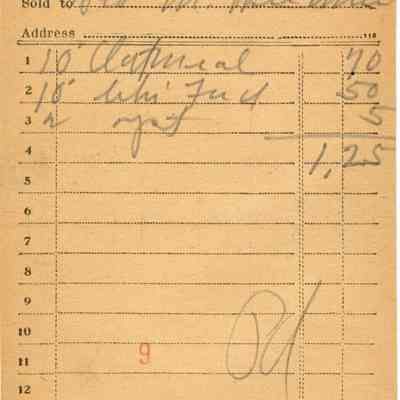 Sold to Geo M.
Address
1 10" Oatmeal 70
2 10" Chi Feed 50
3 2 5
4 1,25
5
6
7
8
9
10
11 9
12
Pd